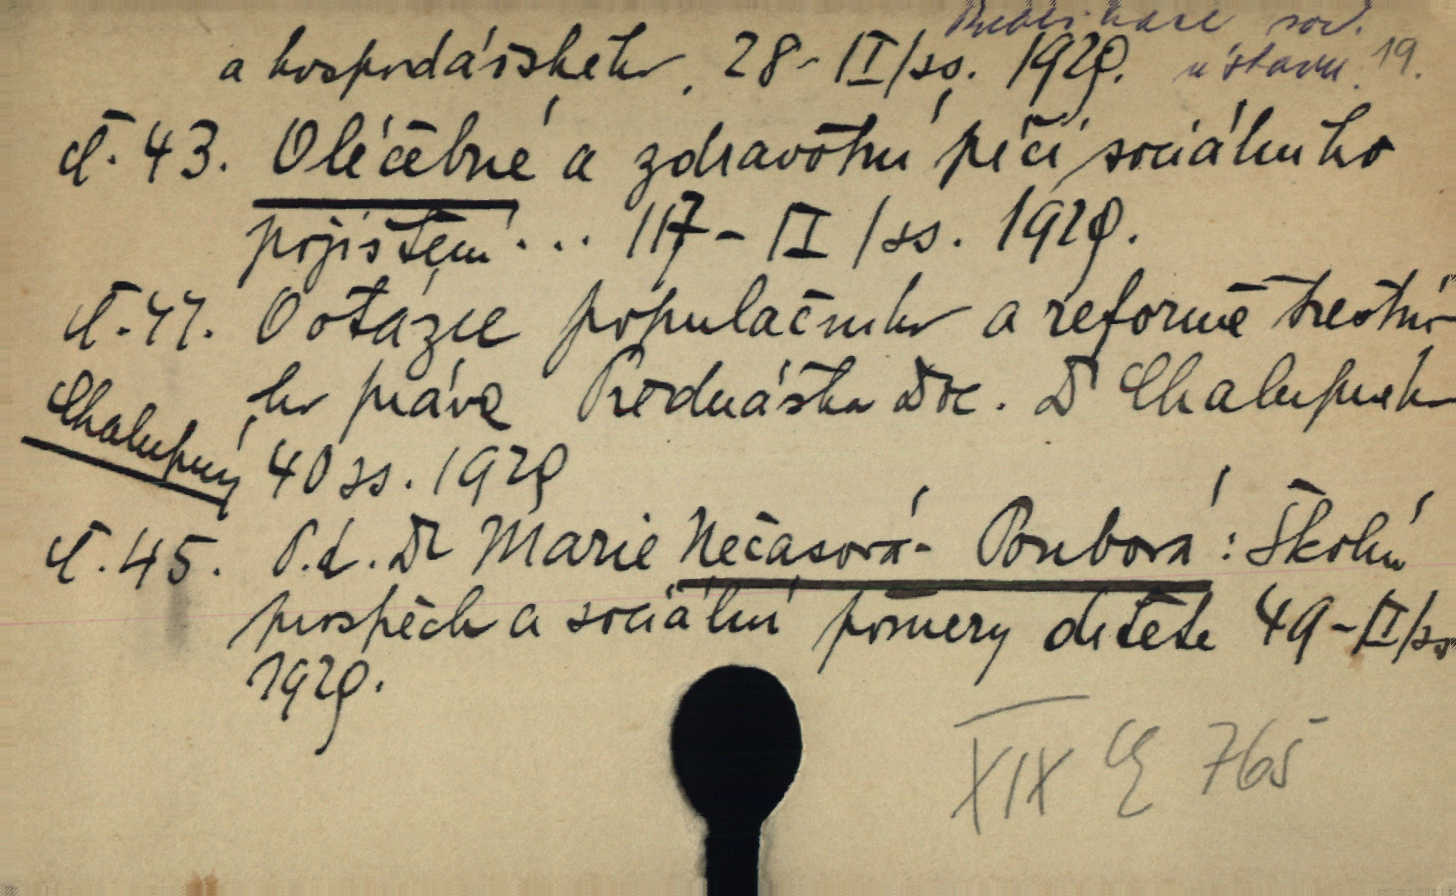 Publikace soc.
ústavu. 19.
a hospodářského, 28-II/ss. 1929.
č. 43. O léčebné a zdravotní péči sociálního
pojištění ... 117-II/ss. 1929.
č. 44. O otázce populačního a reformě trestní-
ho práva Přednáška Doc. Dr Chalupného
Chalupný 40 ss. 1929
č. 45. Dr Marie Nečasová-Poubová: Školní
prospěch a sociální poměry dítěte 49-II/ss
1929.
XIX 765